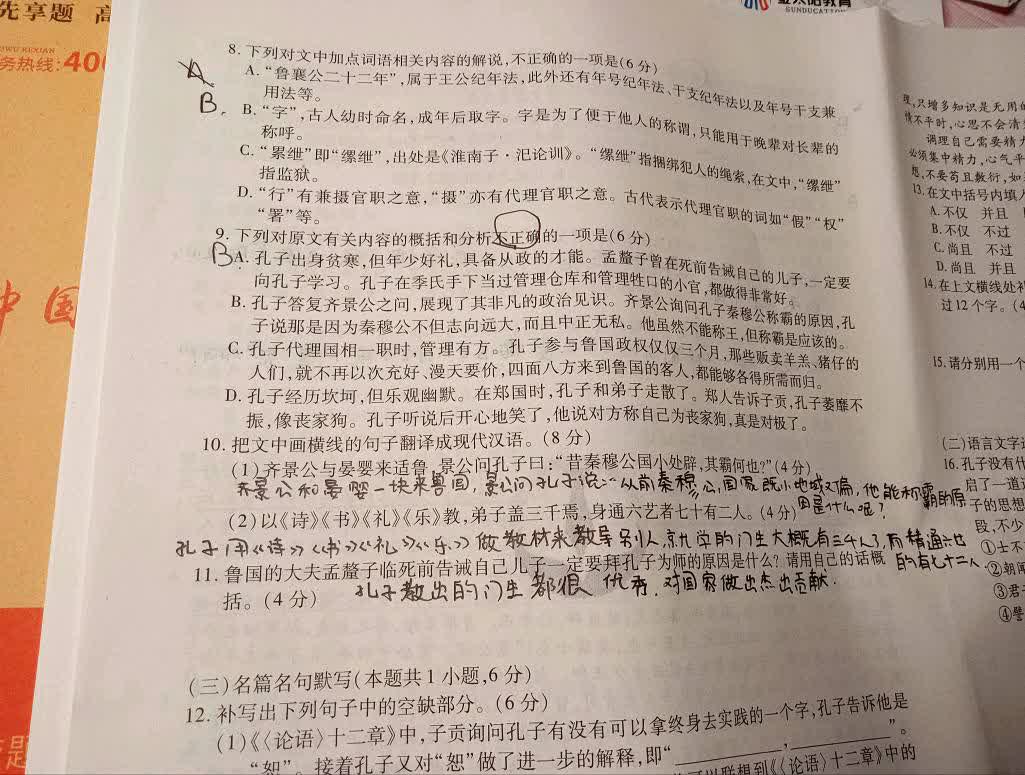 先享题
务热线:400
中国
SUNDUCATION
8. 下列对文中加点词语相关内容的解说,不正确的一项是(6分)
A. “鲁襄公二十二年”,属于王公纪年法,此外还有年号纪年法、干支纪年法以及年号干支兼
用法等。
B.
B. “字”,古人幼时命名,成年后取字。字是为了便于他人的称谓,只能用于晚辈对长辈的
称呼。
C. “累绁”即“缧绁”,出处是《淮南子·氾论训》。“缧绁”指捆绑犯人的绳索,在文中,“缧绁”
指监狱。
D. “行”有兼摄官职之意,“摄”亦有代理官职之意。古代表示代理官职的词如“假”“权”
“署”等。
9. 下列对原文有关内容的概括和分析不正确的一项是(6分)
B
A. 孔子出身贫寒,但年少好礼,具备从政的才能。孟釐子曾在死前告诫自己的儿子,一定要
向孔子学习。孔子在季氏手下当过管理仓库和管理牲口的小官,都做得非常好。
B. 孔子答复齐景公之问,展现了其非凡的政治见识。齐景公询问孔子秦穆公称霸的原因,孔
子说那是因为秦穆公不但志向远大,而且中正无私。他虽然不能称王,但称霸是应该的。
C. 孔子代理国相一职时,管理有方。孔子参与鲁国政权仅仅三个月,那些贩卖羊羔、猪仔的
人们,就不再以次充好、漫天要价,四面八方来到鲁国的客人,都能够各得所需而归。
D. 孔子经历坎坷,但乐观幽默。在郑国时,孔子和弟子走散了。郑人告诉子贡,孔子萎靡不
振,像丧家狗。孔子听说后开心地笑了,他说对方称自己为丧家狗,真是对极了。
10. 把文中画横线的句子翻译成现代汉语。(8分)
(1)齐景公与晏婴来适鲁,景公问孔子曰:“昔秦穆公国小处辟,其霸何也?”(4分)
齐景公和晏婴一块来鲁国,景公问孔子说:“从前秦穆公,国家既小地域又偏,他能称霸的原
因是什么呢?
(2)以《诗》《书》《礼》《乐》教,弟子盖三千焉,身通六艺者七十有二人。(4分)
孔子用《诗》《书》《礼》《乐》做教材来教导别人,就学的门生大概有三千人,而精通六艺
的有七十二人
11. 鲁国的大夫孟釐子临死前告诫自己儿子一定要拜孔子为师的原因是什么?请用自己的话概
括。(4分)
孔子教出的门生都很优秀,对国家做出杰出贡献.
(三)名篇名句默写(本题共1小题,6分)
12. 补写出下列句子中的空缺部分。(6分)
(1)《〈论语〉十二章》中,子贡询问孔子有没有可以拿终身去实践的一个字,孔子告诉他是
“恕”。接着孔子又对“恕”做了进一步的解释,即“ , ”。
可以联想到《〈论语〉十二章》中的
理,只增多知识是无用的
情不平时,心思不会清
调理自己需要精力
必须集中精力,心气平
想,不要苟且敷衍,如
13. 在文中括号内填入
A. 不仅 并且
B. 不仅 不过
C. 尚且 不过
D. 尚且 并且
14. 在上文横线处补
过12个字。(4
15. 请分别用一个
(二)语言文字运
16. 孔子没有什
启了一道
子的思想
段,不少
①士不
②朝闻
③君子
④譬